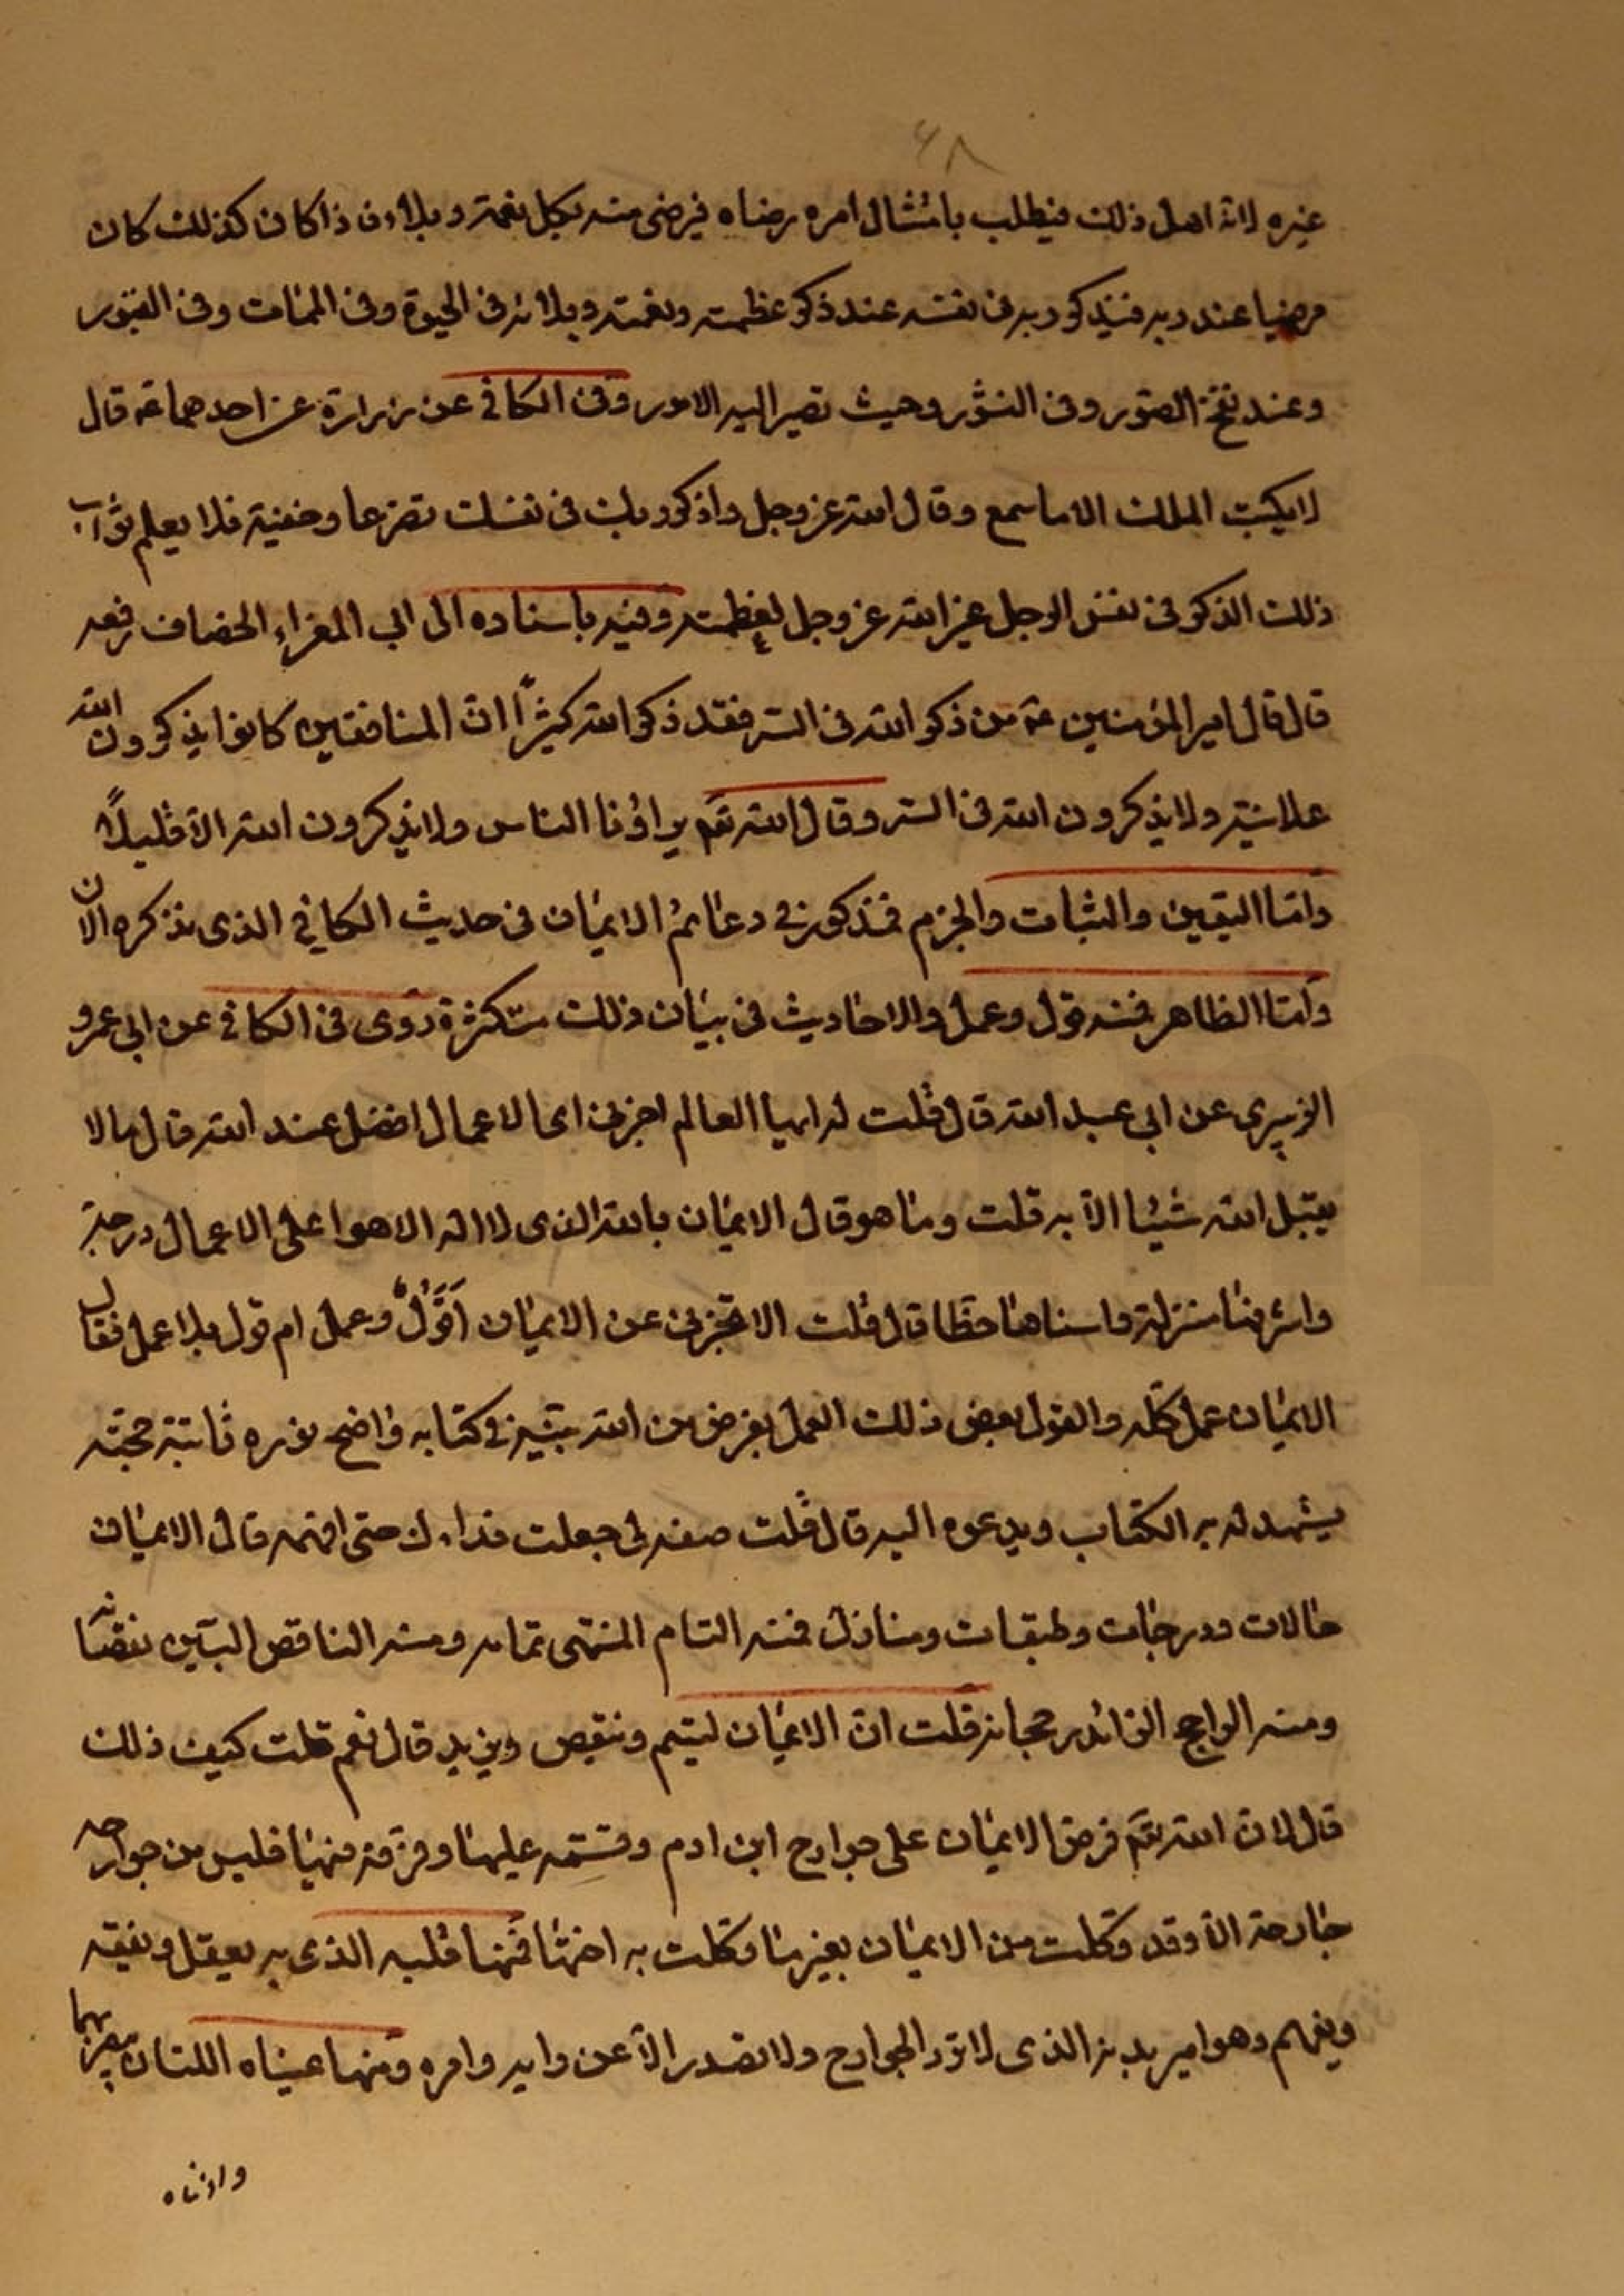 ٤٨
غيره لانه اهل ذلك فيطلب بامتثال امره رضاه فيرضى منه بكل نعمة وبلاء فاذا كان كذلك كان
مرضيا عند ربه فيذكر ربه فى نفسه عند ذكر عظمته ونعمته وبلائه فى الحيوة وفى الممات وفى القبور
وعند نفخة الصور وفى النشور وحيث تصير اليه الامور وفى الكافي عن زرارة عن احدهما عم قال
لا يكتب الملك الا ما سمع وقال الله عز وجل واذكر ربك فى نفسك تضرعا وخفية فلا يعلم ثواب
ذلك الذكر فى نفس الرجل غير الله عز وجل لعظمته وفيه باسناده الى ابي المغراء الخصاف رفعه
قال قال امير المؤمنين عم من ذكر الله فى السر فقد ذكر الله كثيرًا ان المنافقين كانوا يذكرون الله
علانية ولا يذكرون الله فى السر وقال الله تعم يراؤنا الناس ولا يذكرون الله الا قليلاً
وامّا اليقين والثبات والجزم فمذكور في دعائم الايمان فى حديث الكافي الذى نذكره الان
وامّا الظاهر فمنه قول وعمل والاحاديث فى بيان ذلك متكثرة روى فى الكافي عن ابى عمرو
الزبيرى عن ابي عبد الله قال قلت له ايها العالم اخبرنى اى الاعمال افضل عند الله قال ما لا
يقبل الله شيئا الا به قلت وما هو قال الايمان بالله الذى لا اله الا هو اعلى الاعمال درجة
واشرفها منزلة واسناها حظا قال قلت الا تخبرنى عن الايمان اَقَوْلٌ وعمل ام قول بلا عمل فقال
الايمان عمل كلّه والقول بعض ذلك العمل بفرض من الله بيّن في كتابه واضح نوره ثابتة حجته
يشهد له به الكتاب ويدعوه اليه قال قلت صفه لى جعلت فداءك حتى افهمه قال الايمان
حالات ودرجات وطبقات ومنازل فمنه التام المنتهى تمامه ومنه الناقص البيّن نقصانه
ومنه الراجح الزائد رجحانه قلت ان الايمان ليتم وينقص ويزيد قال نعم قلت كيف ذلك
قال لان الله تعم فرض الايمان على جوارح ابن ادم وقسّمه عليها وفرّقه فيها فليس من جوارحه
جارحة الا وقد وكلت من الايمان بغير ما وكلت به اختها فمنها قلبه الذى به يعقل ويفقه
ويفهم وهو امير بدنه الذى لا ترد الجوارح ولا تصدر الا عن رايه وامره ومنها عيناه اللتان يبصر بهما
واذناه